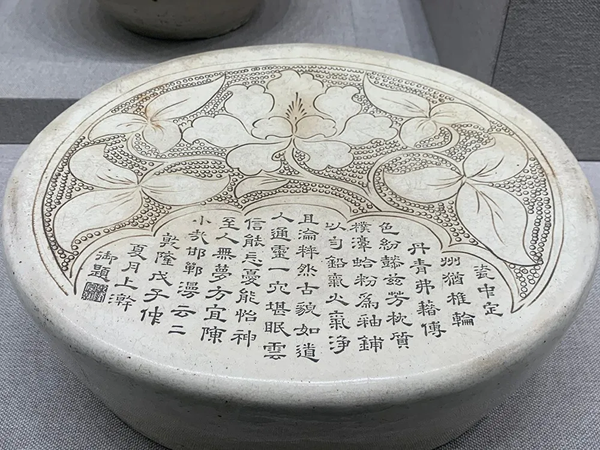 瓷中定
州猶椎輪
丹青弗藉傳
色紛懿茲芳枕質
樸淳蛤粉為釉鋪
以勻鉛氣火氣淨
且淪粹然古貌如道
人通靈一穴堪眠雲
信能忘憂能怡神
至人無夢方宜陳
小哉邯鄲漫云二
乾隆戊子仲
夏月上澣
御題